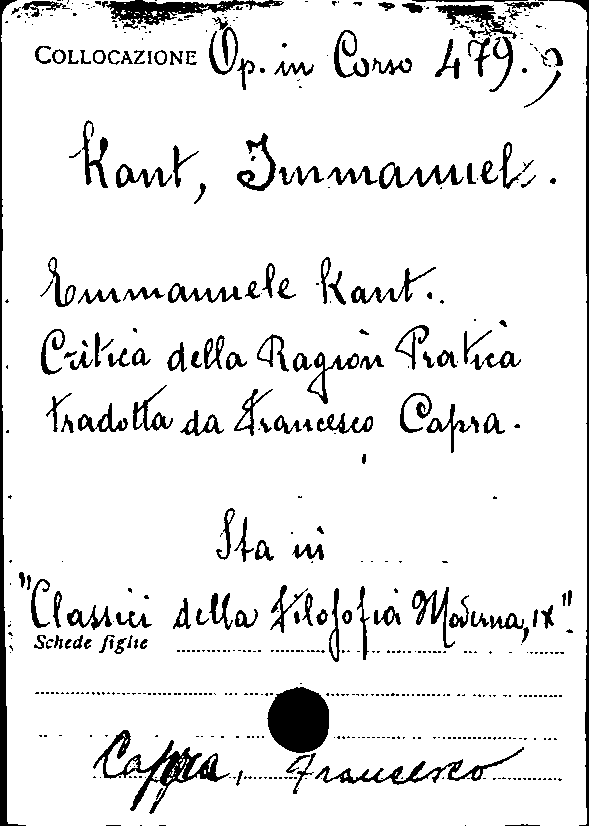 COLLOCAZIONE Op. in Corso 479.9
Kant, Immanuel.
Emmanuele Kant.
Critica della Ragion Pratica
tradotta da Francesco Capra.
Sta in
"Classici della Filosofia Moderna, IX".
Schede figlie
Capra, Francesco